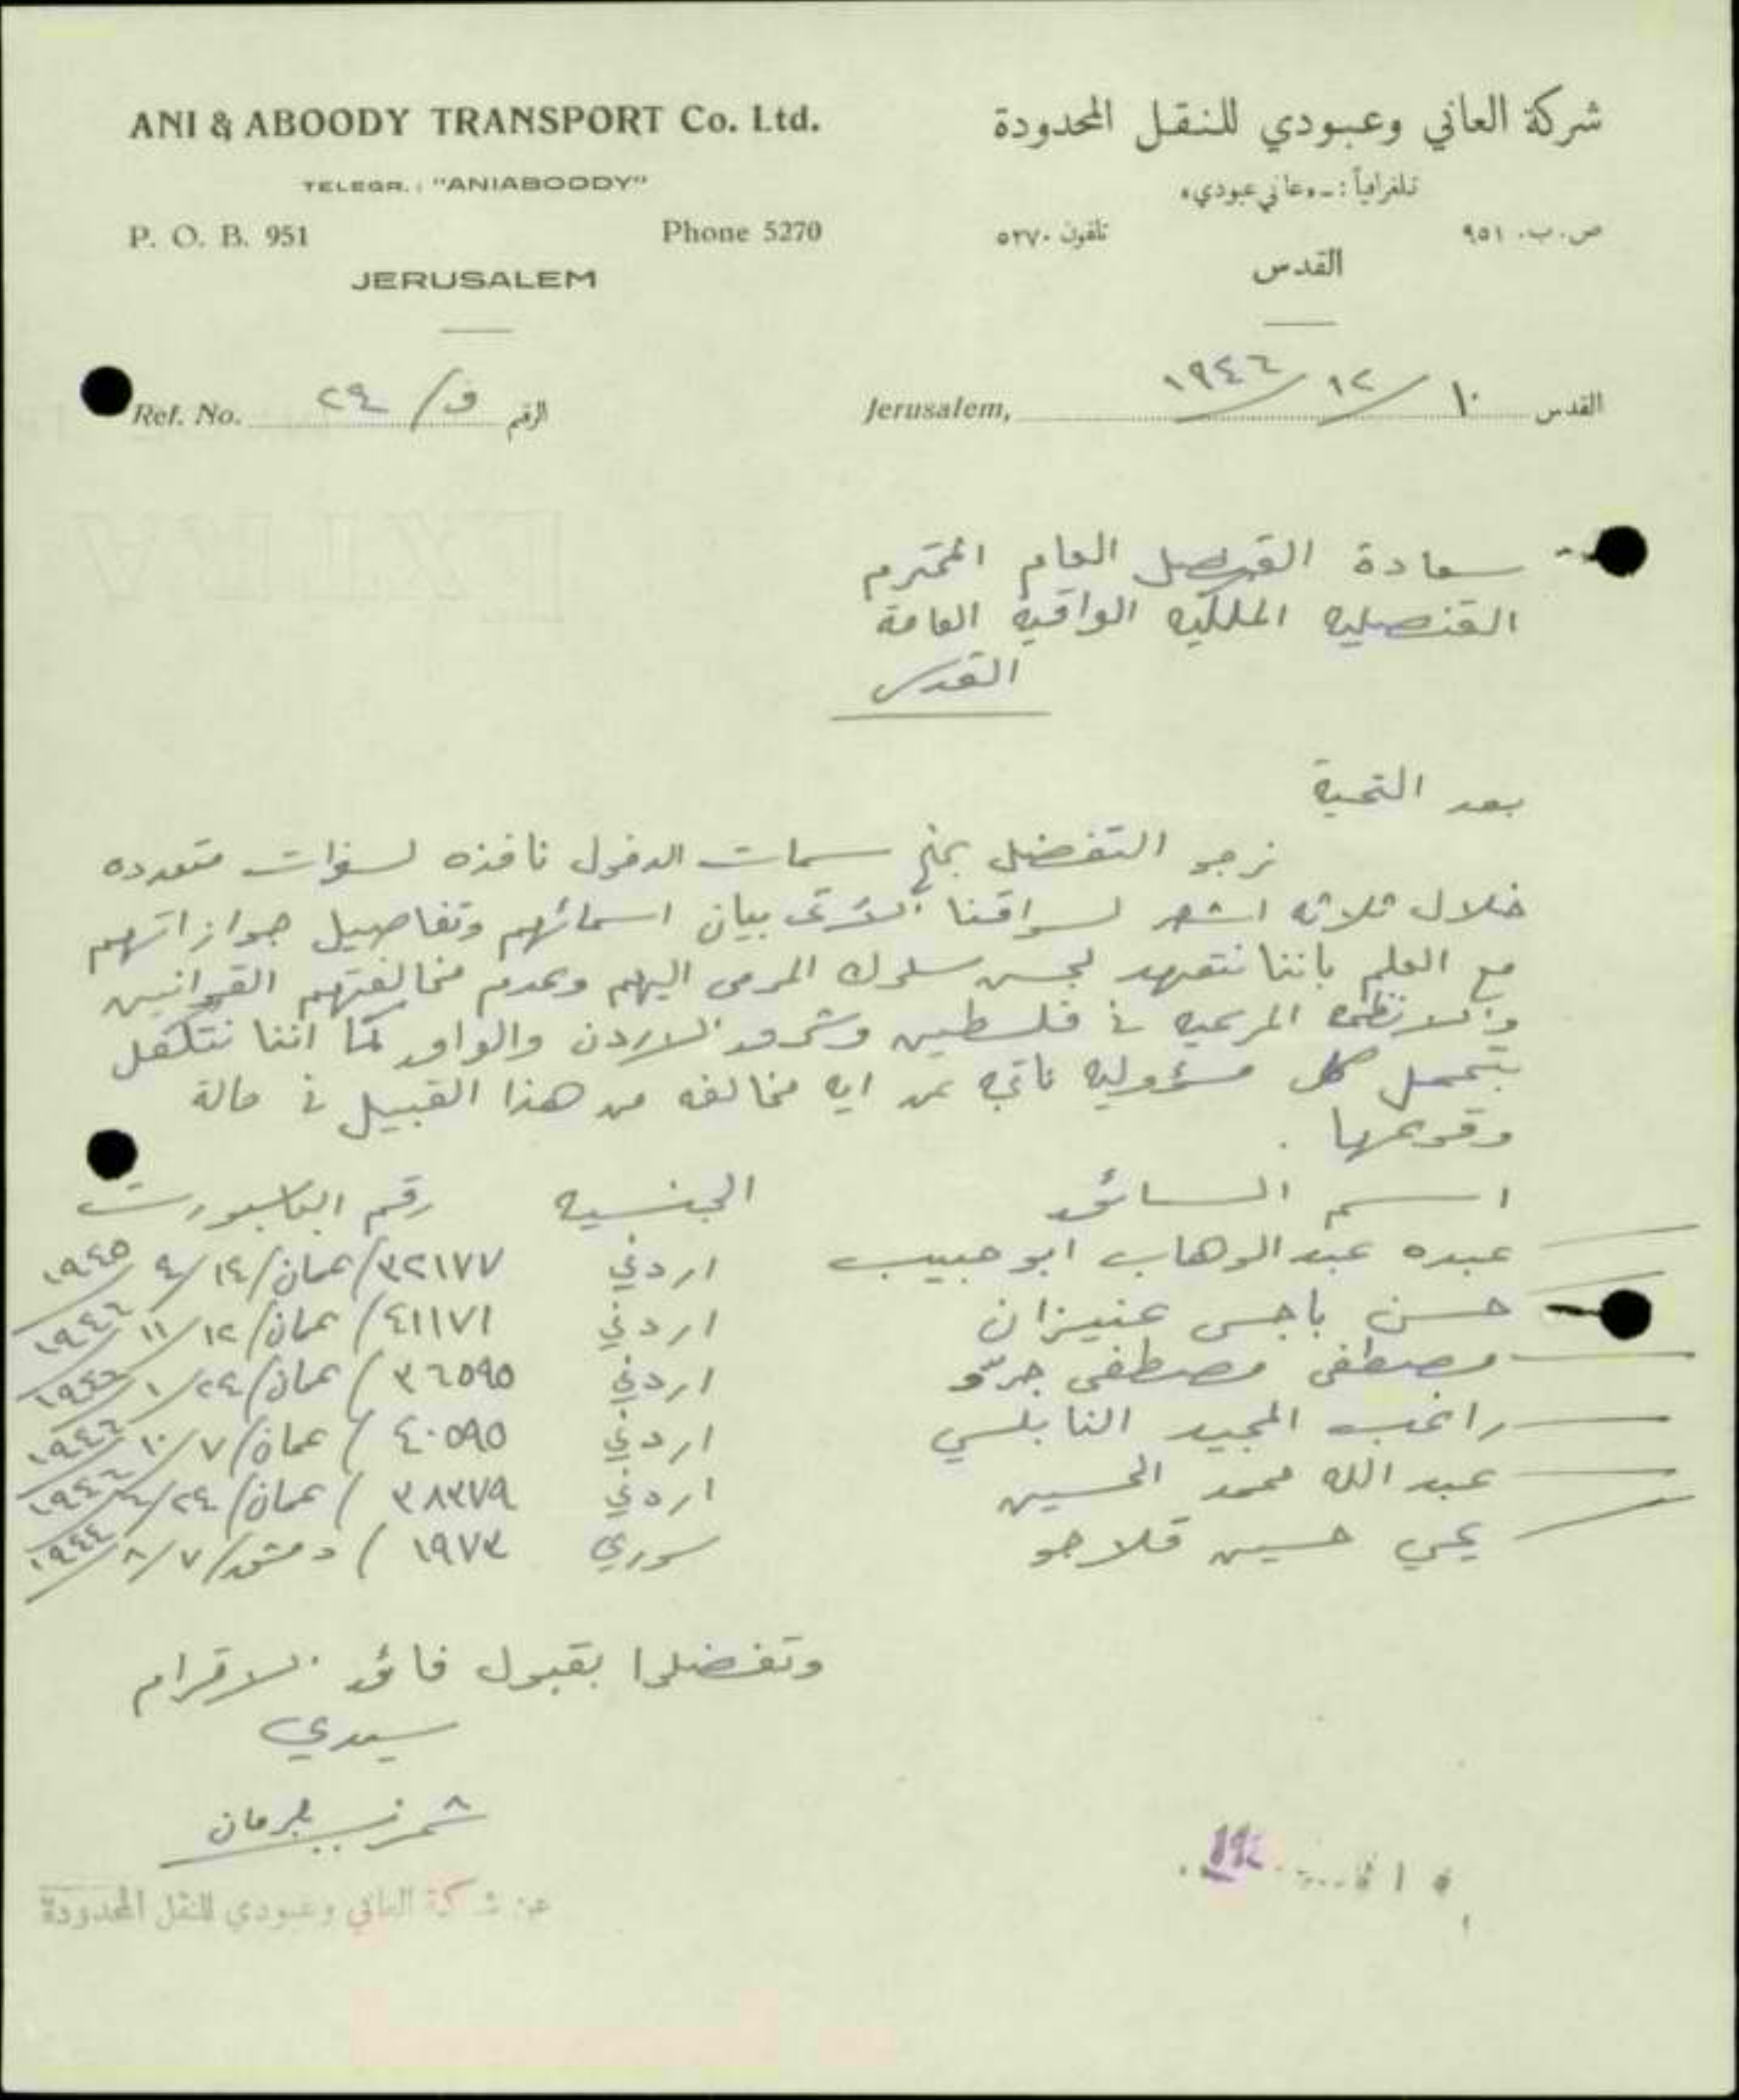 ANI & ABOODY TRANSPORT Co. Ltd.
TELEGR.: "ANIABOODY"
P. O. B. 951 Phone 5270
JERUSALEM
شركة العاني وعبودي للنقل المحدودة
تلغرافياً :ـ «عاني عبودي»
ص. ب. ٩٥١ تلفون ٥٢٧٠
القدس
Ref. No. ٢٤/و الرقم
Jerusalem, ١٠/١٢/١٩٤٦ القدس
سعادة القنصل العام المحترم
القنصليه الملكيه العراقيه العامة
القدس
بعد التحية
نرجو التفضل بمنح سمات الدخول نافذه لسفرات متعدده
خلال ثلاثه اشهر لسواقنا الآتى بيان اسمائهم وتفاصيل جوازاتهم
مع العلم باننا نتعهد بحسن سلوك المومى اليهم وعدم مخالفتهم القوانين
والانظمه المرعيه في فلسطين وشرق الاردن والعراق كما اننا نتكفل
بتحمل كل مسؤوليه ناتجه عن ايه مخالفه من هذا القبيل في حالة
وقوعها .
اسم السائق الجنسيه رقم الباسبورت
عبده عبد الوهاب ابو حبيب اردني ٣٢١٧٧/عمان/١٤/٩/١٩٤٥
حسن باجس عنيزان اردني ٤١١٧١/عمان/١٢/١١/١٩٤٦
مصطفى مصطفى جرّو اردني ٣٦٥٩٥/عمان/٢٤/١/١٩٤٦
راغب المجيد النابلسي اردني ٤٠٥٩٥/عمان/٧/١٠/١٩٤٦
عبد الله محمد الحسين اردني ٣٨٣٧٩/عمان/٢٤/١٩٤٦
يحي حسين قلاجو سوري ١٩٧٣/دمشق/٧/٨/١٩٤٤
وتفضلوا بقبول فائق الاقرام
سيدي
عن شركة العاني وعبودي للنقل المحدودة